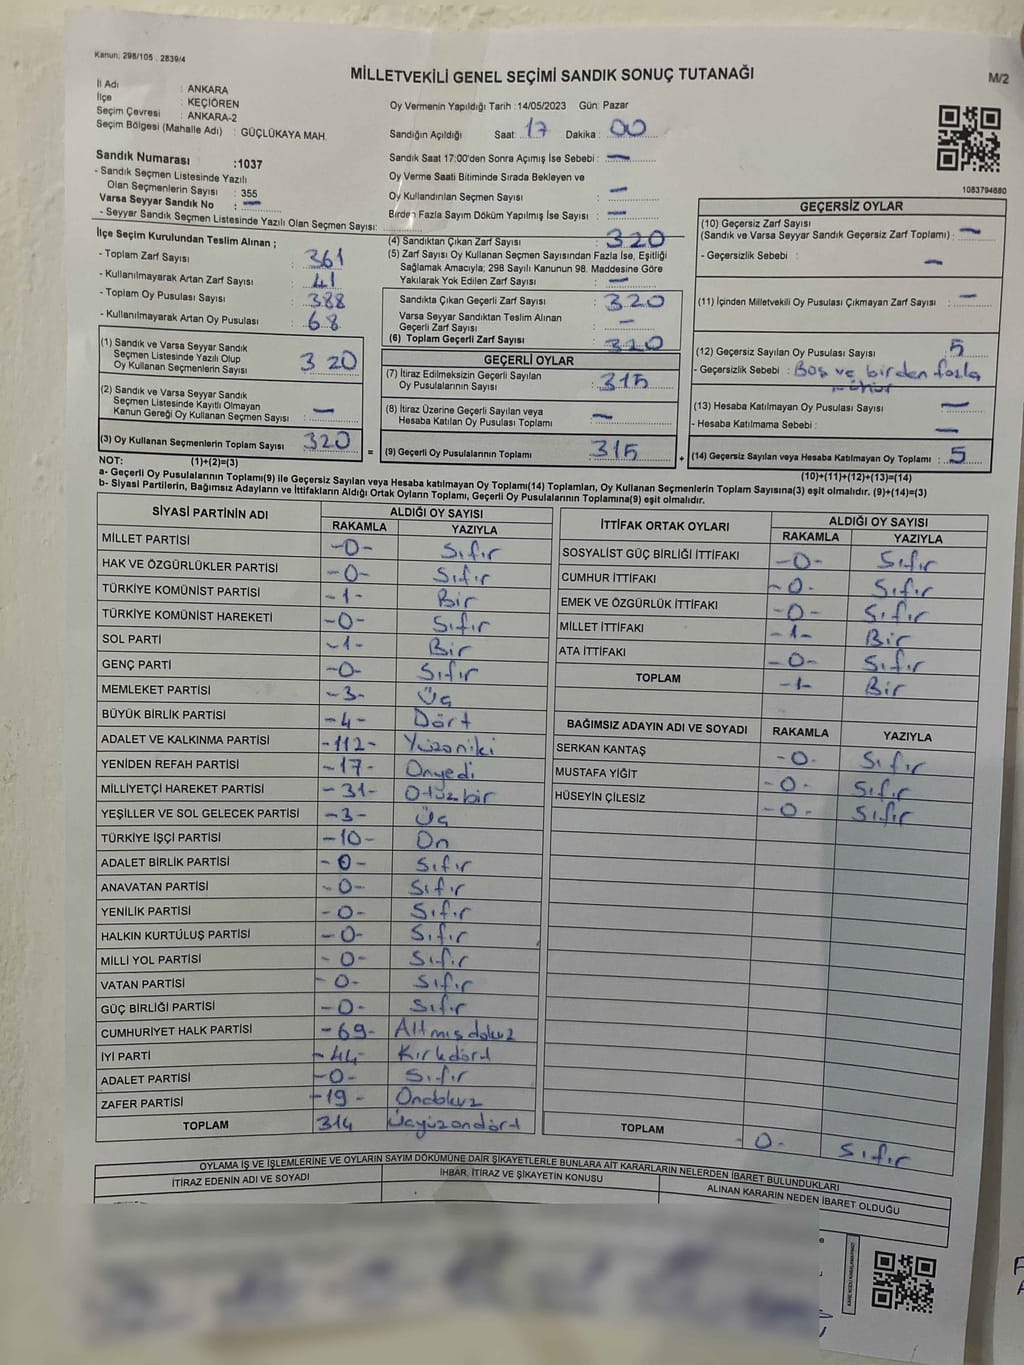 Kanun: 298/105 , 2839/4
MİLLETVEKİLİ GENEL SEÇİMİ SANDIK SONUÇ TUTANAĞI
M/2
İl Adı : ANKARA
İlçe : KEÇİÖREN
Seçim Çevresi : ANKARA-2
Seçim Bölgesi (Mahalle Adı) : GÜÇLÜKAYA MAH.
Sandık Numarası :1037
- Sandık Seçmen Listesinde Yazılı
Olan Seçmenlerin Sayısı : 355
Varsa Seyyar Sandık No : —
- Seyyar Sandık Seçmen Listesinde Yazılı Olan Seçmen Sayısı:
Oy Vermenin Yapıldığı Tarih : 14/05/2023 Gün: Pazar
Sandığın Açıldığı Saat: 17 Dakika : 00
Sandık Saat 17:00'den Sonra Açımış İse Sebebi : —
Oy Verme Saati Bitiminde Sırada Bekleyen ve
Oy Kullandırılan Seçmen Sayısı : —
Birden Fazla Sayım Döküm Yapılmış İse Sayısı : —
1083794680
İlçe Seçim Kurulundan Teslim Alınan ;
- Toplam Zarf Sayısı : 361
- Kullanılmayarak Artan Zarf Sayısı : 41
- Toplam Oy Pusulası Sayısı : 388
- Kullanılmayarak Artan Oy Pusulası : 68
(1) Sandık ve Varsa Seyyar Sandık
Seçmen Listesinde Yazılı Olup
Oy Kullanan Seçmenlerin Sayısı : 320
(2) Sandık ve Varsa Seyyar Sandık
Seçmen Listesinde Kayıtlı Olmayan
Kanun Gereği Oy Kullanan Seçmen Sayısı : —
(3) Oy Kullanan Seçmenlerin Toplam Sayısı : 320
(4) Sandıktan Çıkan Zarf Sayısı : 320
(5) Zarf Sayısı Oy Kullanan Seçmen Sayısından Fazla İse, Eşitliği
Sağlamak Amacıyla; 298 Sayılı Kanunun 98. Maddesine Göre
Yakılarak Yok Edilen Zarf Sayısı : —
Sandıkta Çıkan Geçerli Zarf Sayısı : 320
Varsa Seyyar Sandıktan Teslim Alınan
Geçerli Zarf Sayısı : —
(6) Toplam Geçerli Zarf Sayısı : 320
GEÇERLİ OYLAR
(7) İtiraz Edilmeksizin Geçerli Sayılan
Oy Pusulalarının Sayısı : 315
(8) İtiraz Üzerine Geçerli Sayılan veya
Hesaba Katılan Oy Pusulası Toplamı : —
= (9) Geçerli Oy Pusulalarının Toplamı : 315
GEÇERSİZ OYLAR
(10) Geçersiz Zarf Sayısı
(Sandık ve Varsa Seyyar Sandık Geçersiz Zarf Toplamı) : —
- Geçersizlik Sebebi : —
(11) İçinden Milletvekili Oy Pusulası Çıkmayan Zarf Sayısı : —
(12) Geçersiz Sayılan Oy Pusulası Sayısı : 5
- Geçersizlik Sebebi : Boş ve birden fazla
mühür
(13) Hesaba Katılmayan Oy Pusulası Sayısı : —
- Hesaba Katılmama Sebebi : —
+ (14) Geçersiz Sayılan veya Hesaba Katılmayan Oy Toplamı : 5
NOT: (1)+(2)=(3) (10)+(11)+(12)+(13)=(14)
a- Geçerli Oy Pusulalarının Toplamı(9) ile Geçersiz Sayılan veya Hesaba Katılmayan Oy Toplamı(14) Toplamları, Oy Kullanan Seçmenlerin Toplam Sayısına(3) eşit olmalıdır. (9)+(14)=(3)
b- Siyasi Partilerin, Bağımsız Adayların ve İttifakların Aldığı Ortak Oyların Toplamı, Geçerli Oy Pusulalarının Toplamına(9) eşit olmalıdır.
SİYASİ PARTİNİN ADI ALDIĞI OY SAYISI
RAKAMLA YAZIYLA
MİLLET PARTİSİ -0- Sıfır
HAK VE ÖZGÜRLÜKLER PARTİSİ -0- Sıfır
TÜRKİYE KOMÜNİST PARTİSİ -1- Bir
TÜRKİYE KOMÜNİST HAREKETİ -0- Sıfır
SOL PARTİ -1- Bir
GENÇ PARTİ -0- Sıfır
MEMLEKET PARTİSİ -3- Üç
BÜYÜK BİRLİK PARTİSİ -4- Dört
ADALET VE KALKINMA PARTİSİ -112- Yüzoniki
YENİDEN REFAH PARTİSİ -17- Onyedi
MİLLİYETÇİ HAREKET PARTİSİ -31- Otuzbir
YEŞİLLER VE SOL GELECEK PARTİSİ -3- Üç
TÜRKİYE İŞÇİ PARTİSİ -10- On
ADALET BİRLİK PARTİSİ -0- Sıfır
ANAVATAN PARTİSİ -0- Sıfır
YENİLİK PARTİSİ -0- Sıfır
HALKIN KURTULUŞ PARTİSİ -0- Sıfır
MİLLİ YOL PARTİSİ -0- Sıfır
VATAN PARTİSİ -0- Sıfır
GÜÇ BİRLİĞİ PARTİSİ -0- Sıfır
CUMHURİYET HALK PARTİSİ -69- Altmışdokuz
İYİ PARTİ -44- Kırkdört
ADALET PARTİSİ -0- Sıfır
ZAFER PARTİSİ -19- Ondokuz
TOPLAM 314 Üçyüzondört
İTTİFAK ORTAK OYLARI ALDIĞI OY SAYISI
RAKAMLA YAZIYLA
SOSYALİST GÜÇ BİRLİĞİ İTTİFAKI -0- Sıfır
CUMHUR İTTİFAKI -0- Sıfır
EMEK VE ÖZGÜRLÜK İTTİFAKI -0- Sıfır
MİLLET İTTİFAKI -1- Bir
ATA İTTİFAKI -0- Sıfır
TOPLAM -1- Bir
BAĞIMSIZ ADAYIN ADI VE SOYADI RAKAMLA YAZIYLA
SERKAN KANTAŞ -0- Sıfır
MUSTAFA YİĞİT -0- Sıfır
HÜSEYİN ÇİLESİZ -0- Sıfır
TOPLAM -0- Sıfır
OYLAMA İŞ VE İŞLEMLERİNE VE OYLARIN SAYIM DÖKÜMÜNE DAİR ŞİKAYETLERLE BUNLARA AİT KARARLARIN NELERDEN İBARET BULUNDUKLARI
İTİRAZ EDENİN ADI VE SOYADI İHBAR, İTİRAZ VE ŞİKAYETİN KONUSU ALINAN KARARIN NEDEN İBARET OLDUĞU